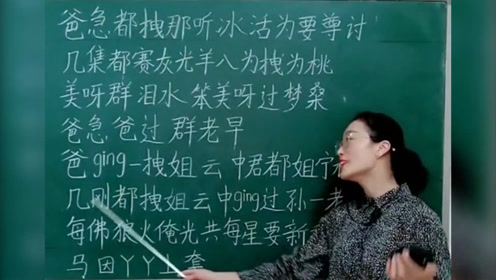 爸急都拽那听冰沽为要尊讨
几集都赛灰光羊八为拽为桃
美呀群泪水笨美呀过梦桑
爸急爸过群老早
爸ging一拽姐云中君都姐字
几刚都拽姐云中ging过孙一老
每佛狼火俺光共每星要新
马因丫丫上套